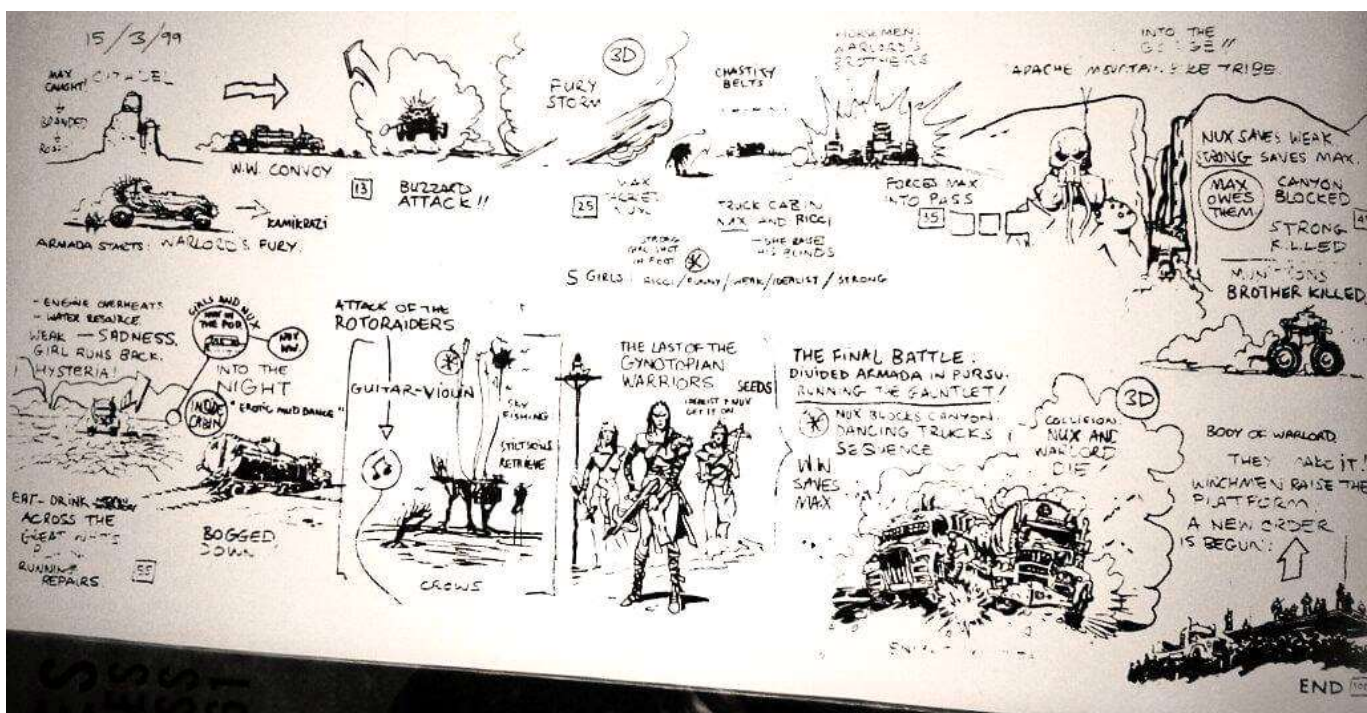 15/3/99
MAX
CAUGHT!
CITADEL
BRANDED
W.W. CONVOY
KAMIKRAZI
ARMADA STARTS: WARLORD'S FURY.
13
BUZZARD
ATTACK!!
3D
FURY
STORM
25
MAX
CHASTITY
BELTS
TRUCK CABIN
MAX AND RICCI
- SHE RAISES
HIS BLINDS
STRONG
GIRL SHOT
IN FOOT
5 GIRLS: RICCI/FUNNY/WEAK/IDEALIST/STRONG
WARLORD'S
BROTHERS
FORCES MAX
INTO PASS
35
INTO THE
GORGE!!
APACHE MOUNTAIN BIKE TRIBE.
NUX SAVES WEAK
STRONG SAVES MAX.
MAX
OWES
THEM
CANYON
BLOCKED
STRONG
KILLED
MUNITIONS
BROTHER KILLED.
- ENGINE OVERHEATS
- WATER RESOURCE
WEAK - SADNESS.
GIRL RUNS BACK.
HYSTERIA!
GIRLS AND NUX
IN
THE POD
INTO THE
NIGHT
INSIDE
CABIN
"EROTIC MUD DANCE"
EAT - DRINK
ACROSS THE
GREAT
RUNNING
REPAIRS
55
BOGGED
DOWN
ATTACK OF THE
ROTORAIDERS
GUITAR-VIOLIN
SKY
FISHING
RETRIEVE
CROWS
THE LAST OF THE
GYNOTOPIAN
WARRIORS
SEEDS
IDEALIST & NUX
GET IT ON
THE FINAL BATTLE:
DIVIDED ARMADA IN PURSU
RUNNING THE GAUNTLET!
NUX BLOCKS CANYON.
DANCING TRUCKS
SEQUENCE
W.W
SAVES
MAX
COLLISION
NUX AND
WARLORD
DIE!
3D
BODY OF WARLORD
THEY MAKE IT!
WINCHMEN RAISE THE
PLATFORM.
A NEW ORDER
IS BEGUN.
END